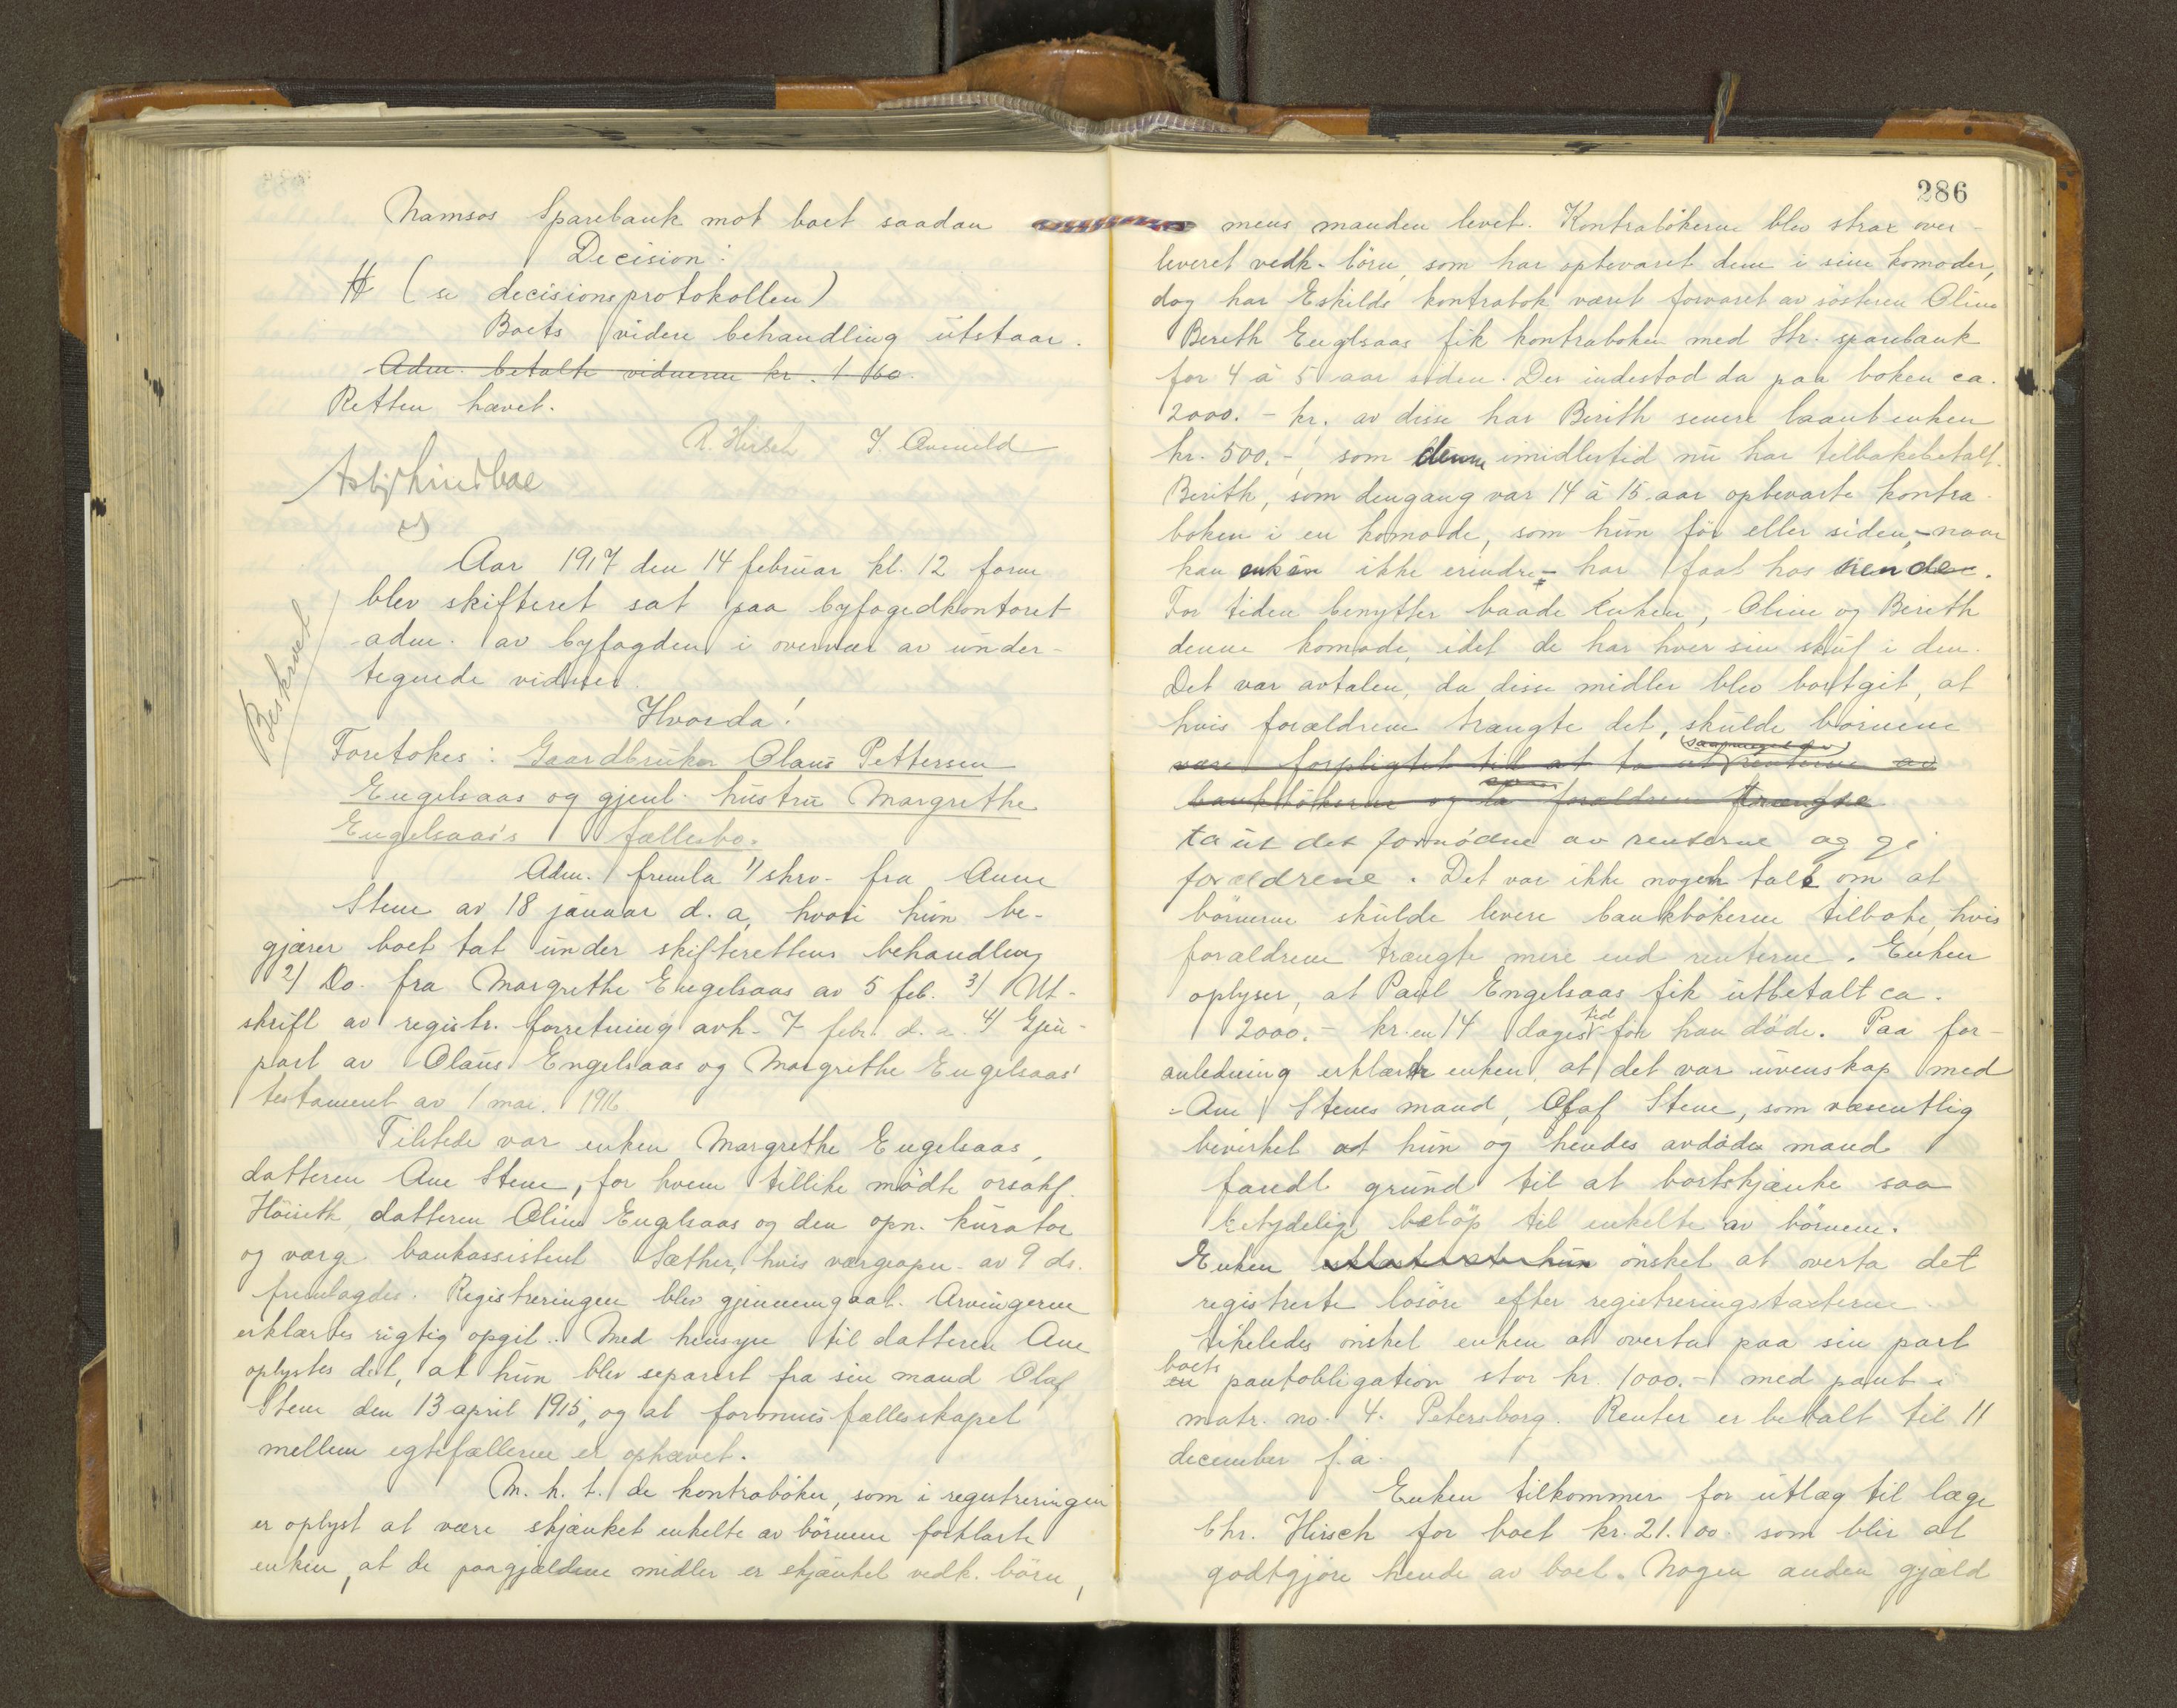 Namsos Sparebank mot boet saadan
Decision:
(se decisionsprotokollen)
Boets videre behandling utstaar.
Adm. betalte vidnerne kr. 1.60.
Retten hævet.
R. Hirsch
Aar 1917 den 14 februar kl. 12 form
blev skifteret sat paa byfogedkontoret
adm. av byfogden i overvær av under-
tegnede vidner.
Beskrevet
Hvorda!
Foretokes: Gaardbruker Olaus Pettersen
Engelsaas og gjenl. hustru Margrethe
Engelsaas's fællesbo.
Adm. fremla 1/ skrv. fra Anne
Stene av 18 januar d. a, hvori hun be-
gjærer boet tat under skifterettens behandling
2/ Do. fra Margrethe Engelsaas av 5 feb. 3/ Ut-
skrift av registr. forretning avh. 7 febr. d. a. 4/ Gjen-
part av Olaus Engelsaas og Margrethe Engelsaas'
testament av 1 mai. 1916
Tilstede var enken Margrethe Engelsaas,
datteren Ane Stene, for hvem tillike mødte orsakf.
datteren Oline Englsaas og den opn. kurator
og værge bankassistent Sæther, hvis værgeopn. av 9 ds.
fremlagdes. Registreringen blev gjennemgaat. Arvingerne
erklærtes rigtig opgit. Med hensyn til datteren Ane
oplystes det, at hun blev separert fra sin mand Olaf
Stene den 13 april 1915, og at formuesfællesskapet
mellem egtefællerne er ophævet.
M. h. t. de kontrabøker, som i registreringen
er oplyst at være skjænket enkelte av børnene forklarte
enken, at de paagjældene midler er skjænket vedk. børn,
286
mens manden levet. Kontrabøkerne blev strax over-
leveret vedk. børn, som har opbevaret dem i sine komoder,
dog har Eskilds kontrabok været forvaret av søsteren Oline
Bereth Englsaas fik kontraboken med Str. sparebank
for 4 à 5 aar siden. Der indestod da paa boken ca.
2000.- kr. av disse har Berith senere laant enken
kr. 500.-, som denne imidlertid nu har tilbakebetalt.
Berith, som dengang var 14 à 15 aar opbevarte kontra-
boken i en komode, som hun før eller siden, - naar
kan enken ikke erindre - har faat hos hende.
For tiden benytter baade Enken, Oline og Bereth
denne komode, idet de har hver sin skuf i den.
Det var avtalen, da disse midler blev bortgit, at
hvis forældrene trængte det, skulde børnene
være forpligtet til at ta ut saameget av renterne av
bankbøkerne og la forældrene trængte
ta ut det fornødne av renterne og gi
forældrene. Det var ikke nogen tale om at
børnene skulde levere bankbøkerne tilbake, hvis
forældrene trængte mere end renterne. Enken
oplyser, at Paul Engelsaas fik utbetalt ca.
2000.- kr. en 14 dages tid før han døde. Paa for-
anledning erklærte enken, at det var uvenskap med
Ane Stenes mand, Olaf Stene, som væsentlig
bevirket at hun og hendes avdøde mand
fandt grund til at bortskjænke saa
betydelig beløp til enkelte av børnene.
Enken ønsket at overta det
registrerte løsøre efter registreringstaxterne
Likeledes ønsket enken at overta paa sin part
boets
en pantobligation stor kr. 1000.- med pant i
matr. no. 4. Petersborg. Renter er betalt til 11
december f. a.
Enken tilkommer for utlæg til læge
Chr. Hirsch for boet kr. 21.00 som blir at
godtgjøre hende av boet. Nogen anden gjæld